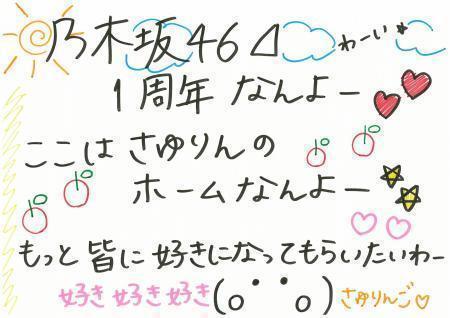 乃木坂46⊿ わーい★
1周年 なんよー
ここは さゆりんの
ホームなんよー
もっと 皆に 好きになってもらいたいわー
好き 好き 好き(o゙ o) さゆりんご♡